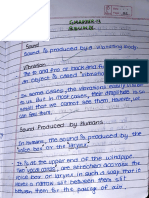 CHAPTER-13
SOUND
Sound
Sound is produced by a vibrating body.
Vibration
The to and fro or back and forth
of an object is called vibration.
In some cases, the vibrations are easily visible
to us. But in most cases, their
small that we cannot see them
them.
Sound Produced by Humans
In humans, the sound is produced by the
voice box or the larynx.
It is at the upper end of the windpipe
two vocal cords, are stretched across the
voice box or larynx, in such a way that it
leave a narrow slit between them
between them for the passing of air.